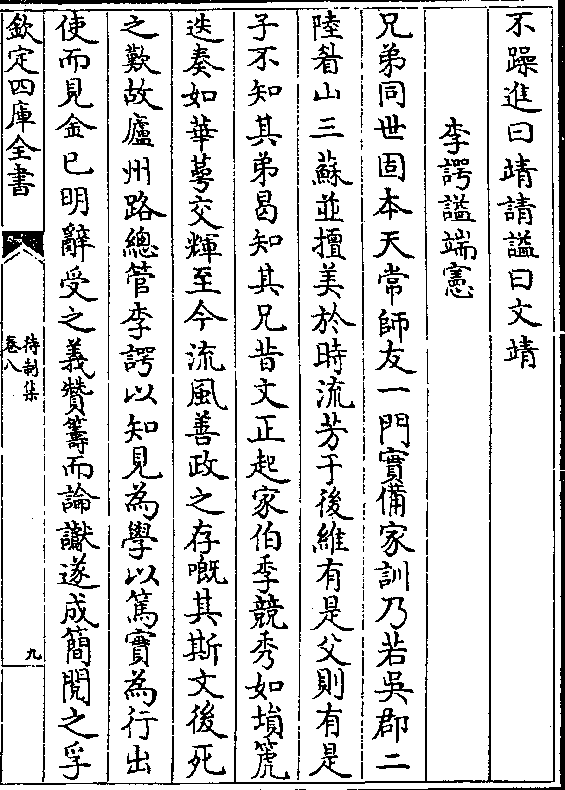 不躁進曰靖請謚曰文靖
李諤謚端憲
兄弟同世固本天常師友一門實備家訓乃若吳郡二
陸眉山三蘇並擅美於時流芳于後維有是父則有是
子不知其弟曷知其兄昔文正起家伯季競秀如塤箎
迭奏如華萼交輝至今流風善政之存嘅其斯文後死
之歎故廬州路總管李諤以知見為學以篤實為行出
使而見金已明辭受之義贊籌而論讞遂成簡閱之孚
欽定四庫全書
待制集
卷八
九